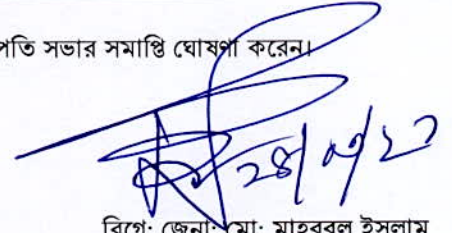 পতি সভার সমাপ্তি ঘোষণা করেন।
বিগে: জেনা: মো: মাহবুবুল ইসলাম